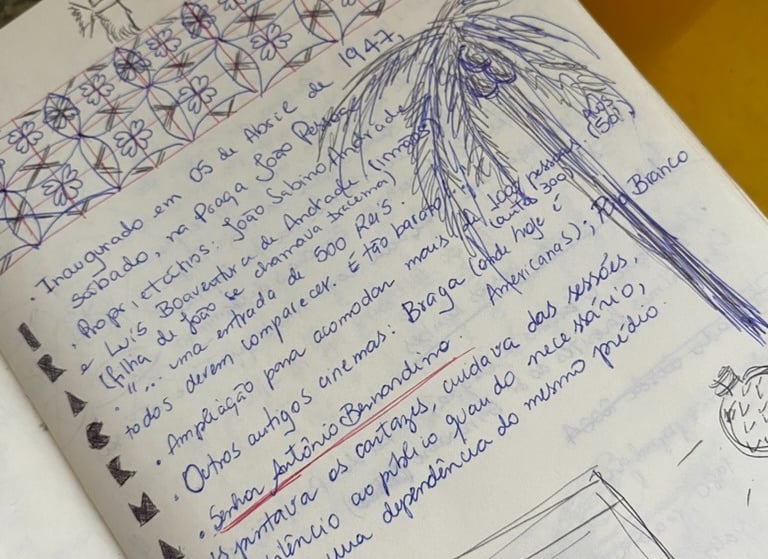 IRACEMA
• Inaugurado em 05 de Abril de 1947,
sábado, na Praça João Pessoa.
• Proprietários: João Sabino Andrade
e Luís Boaventura de Andrade (irmãos)
(filha de João se chamava Iracema)
• "... uma entrada de 500 Reis.
todos devem comparecer. É tão barato..."
• Ampliação para acomodar mais de 1000 pessoas.
(antes 300)
• Outros antigos cinemas: Braga (onde hoje é
Americanas); Pato Branco
(50).
• Senhor Antônio Bernardino.
pintava os cartazes, cuidava das sessões,
silêncio ao público quando necessário,
uma dependência do mesmo prédio.